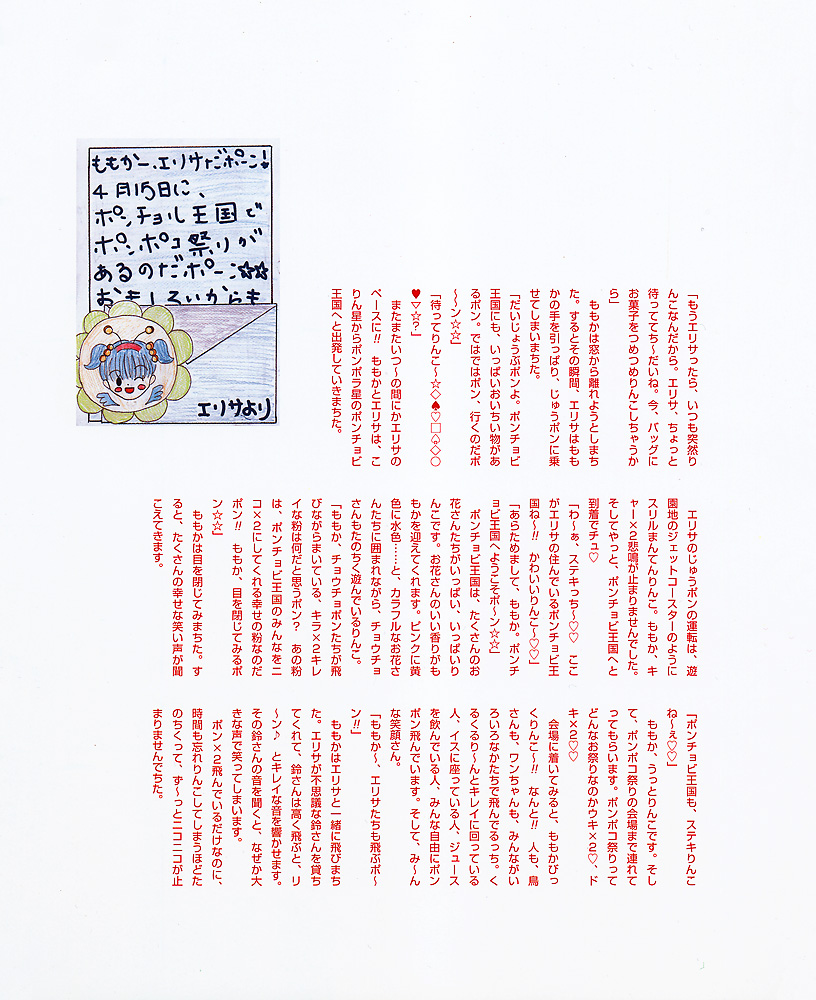 ももかー、エリサだポーン!
4月15日に、
ポンチョル王国で
ポンポコ祭りが
あるのだポーン☆☆
おもしろいからも
エリサより
「もうエリサったら、いつも突然り
んこなんだから。エリサ、ちょっと
待っててち〜だいね。今、バッグに
お菓子をつめつめりんこしちゃうか
ら」
ももかは窓から離れようとしまち
た。するとその瞬間、エリサはもも
かの手を引っぱり、じゅうポンに乗
せてしまいまちた。
「だいじょうぶポンよ。ポンチョビ
王国にも、いっぱいおいちい物があ
るポン。ではではポン、行くのだポ
〜〜ン☆☆」
「待ってりんこ〜☆◇♠♡□♤◇○
♥▽☆?」
またまたいつ〜の間にかエリサの
ペースに!! ももかとエリサは、こ
りん星からポンポラ星のポンチョビ
王国へと出発していきまちた。
エリサのじゅうポンの運転は、遊
園地のジェットコースターのように
スリルまんてんりんこ。ももか、キ
ャー×2悲鳴が止まりませんでした。
そしてやっと、ポンチョビ王国へと
到着でチュ♡
「わ〜ぁ、ステキっち〜♡ ここ
がエリサの住んでいるポンチョビ王
国ね〜!! かわいいりんこ〜♡♡」
「あらためまして、ももか。ポンチ
ョビ王国へようこそポ〜ン☆☆」
ポンチョビ王国は、たくさんのお
花さんたちがいっぱい、いっぱいり
んこです。お花さんのいい香りがも
もかを迎えてくれます。ピンクに黄
色に水色……と、カラフルなお花さ
んたちに囲まれながら、チョウチョ
さんもたのちく遊んでいるりんこ。
「ももか、チョウチョポンたちが飛
びながらまいている、キラ×2キレ
イな粉は何だと思うポン? あの粉
は、ポンチョビ王国のみんなをニ
コ×2にしてくれる幸せの粉なのだ
ポン!! ももか、目を閉じてみるポ
ン☆☆」
ももかは目を閉じてみまちた。す
ると、たくさんの幸せな笑い声が聞
こえてきます。
「ポンチョビ王国も、ステキりんこ
ね〜ぇ♡♡」
ももか、うっとりんこです。そし
て、ポンポコ祭りの会場まで連れて
ってもらいます。ポンポコ祭りって
どんなお祭りなのかウキ×2♡、ド
キ×2♡♡
会場に着いてみると、ももかびっ
くりんこ〜!! なんと!! 人も、鳥
さんも、ワンちゃんも、みんながい
ろいろなかたちで飛んでるっち。く
るくるり〜んとキレイに回っている
人、イスに座っている人、ジュース
を飲んでいる人、みんな自由にポン
ポン飛んでいます。そして、み〜ん
な笑顔さん。
「ももか〜、エリサたちも飛ぶポ〜
ン!!」
ももかはエリサと一緒に飛びまち
た。エリサが不思議な鈴さんを貸ち
てくれて、鈴さんは高く飛ぶと、リ
〜ン♪ とキレイな音を響かせます。
その鈴さんの音を聞くと、なぜか大
きな声で笑ってしまいます。
ポン×2飛んでいるだけなのに、
時間も忘れりんこしてしまうほどた
のちくって、ず〜っとニコニコが止
まりませんでちた。